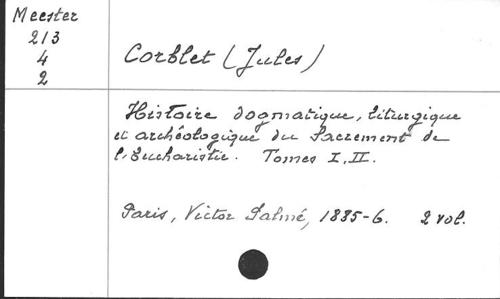 Meester
213
4
2
Corblet (Jules)
Histoire dogmatique, liturgique
et archéologique du Sacrement de
l'Eucharistie. Tomes I, II.
Paris, Victor Palmé, 1885-6. 2 vol.